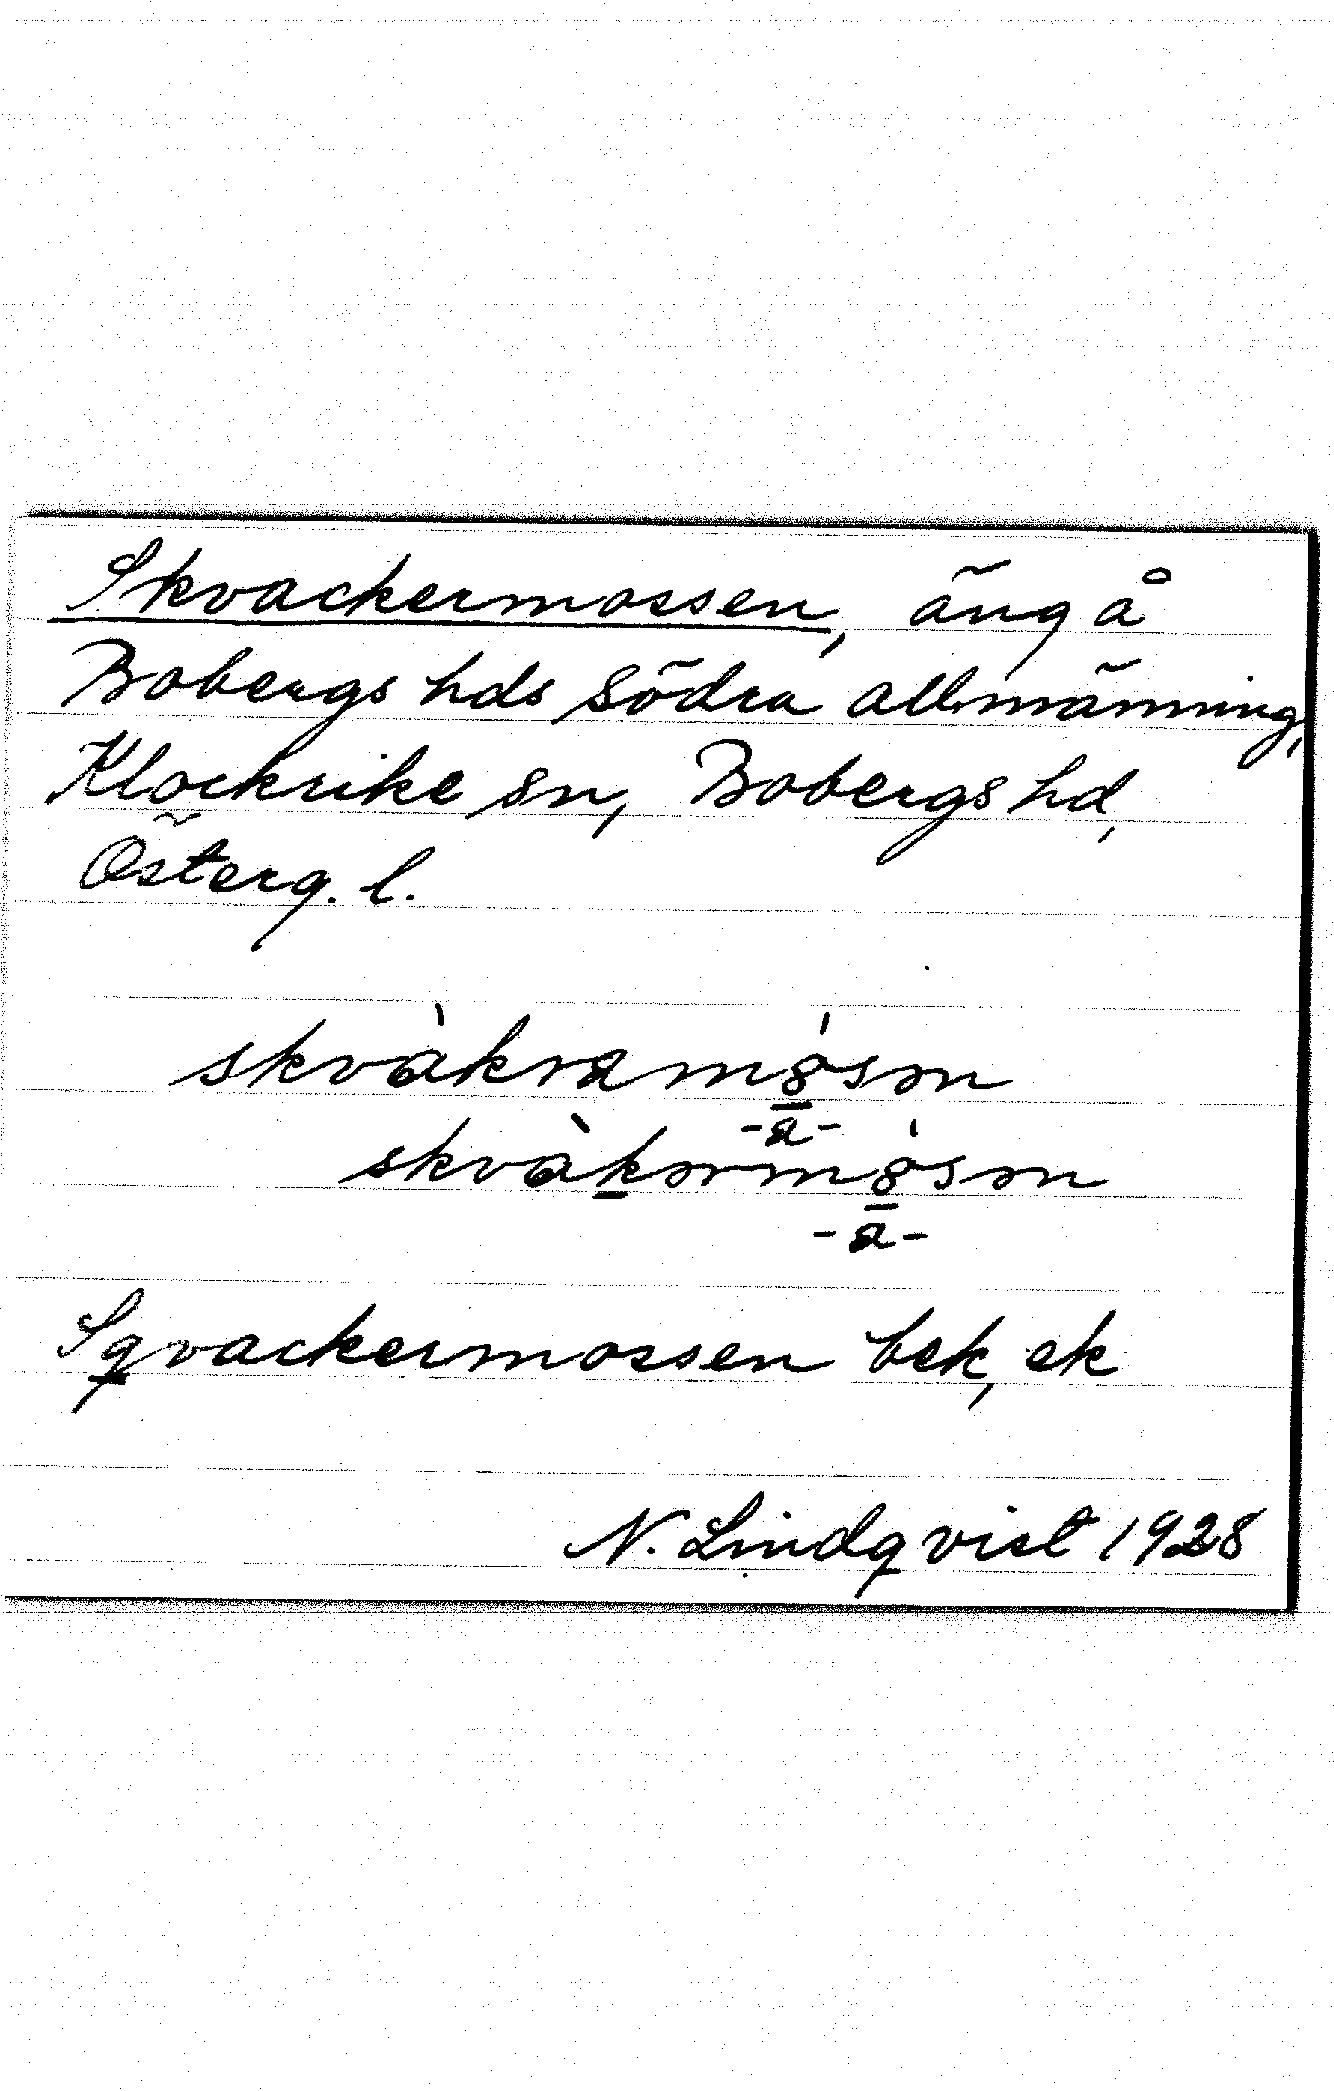 Skvackermossen, äng å
Bobergs hds södra allmänning,
Klockrike sn, Bobergs hd,
Österg. l.
skvàkramósən
-a-
skvàkərmósən
-a-
Sqvackermossen bek, ek
N. Lindqvist 1928